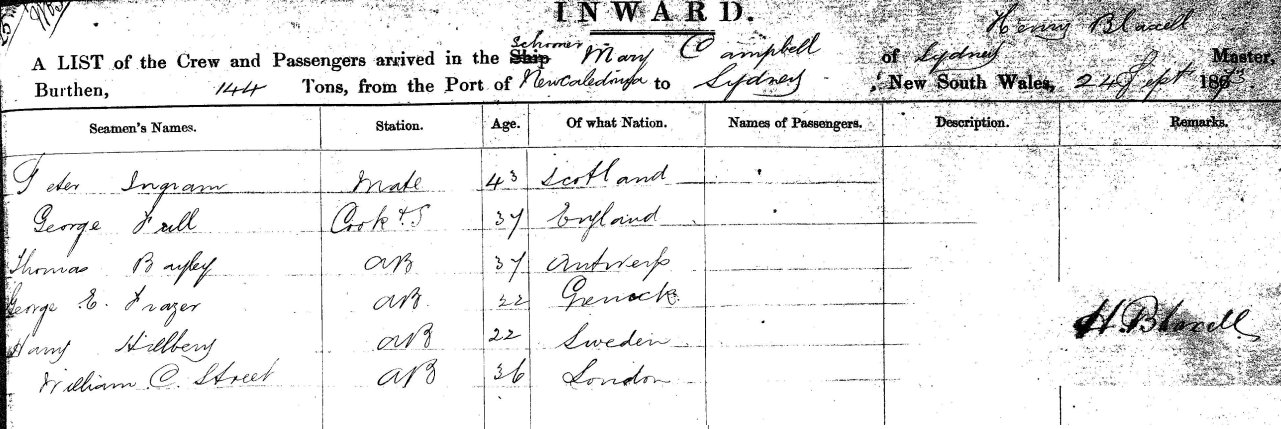 INWARD.
Henry Blaxell
Schooner
A LIST of the Crew and Passengers arrived in the Ship Mary Campbell of Sydney Master,
Burthen, 144 Tons, from the Port of Newcaledonia to Sydney, New South Wales, 24 Sept 1873.
Seamen's Names. Station. Age. Of what Nation. Names of Passengers. Description. Remarks.
Peter Ingram Mate 43 Scotland
George Cook & S 37 England
Thomas Bayley AB 37 Antwerp
George E. Frazer AB 22 Grenock
Harry Hillberg AB 22 Sweden
H. Blaxell
William C. Street AB 36 London